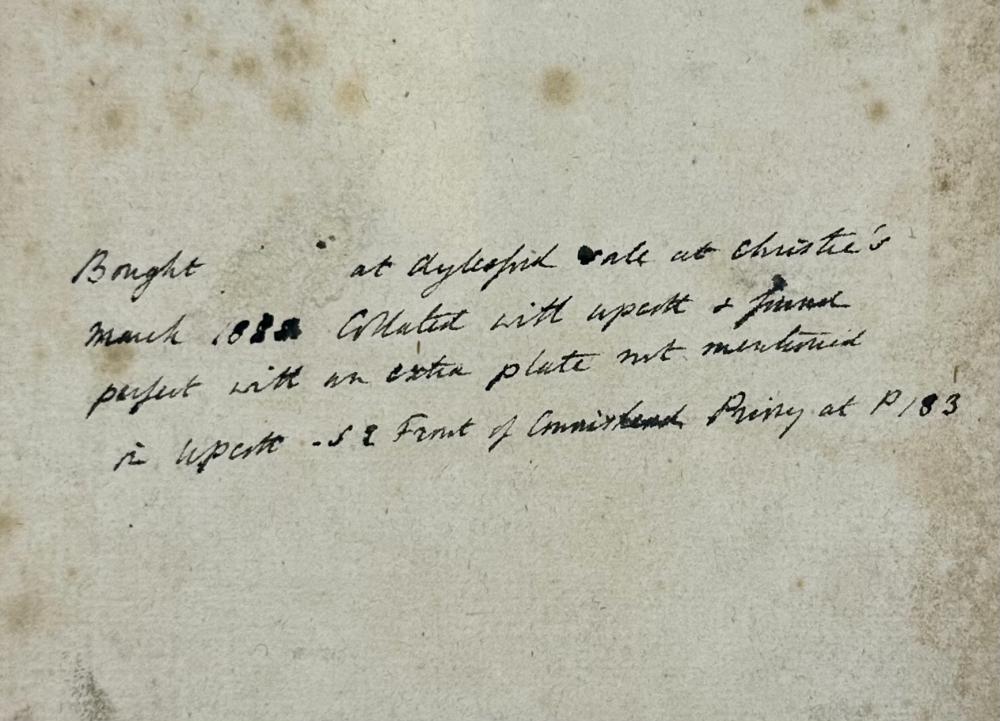 Bought at Aylesford sale at Christie's
March 1888 Collated with Upcott & found
perfect with an extra plate not mentioned
in Upcott - S E Front of Connishead Priory at P 183